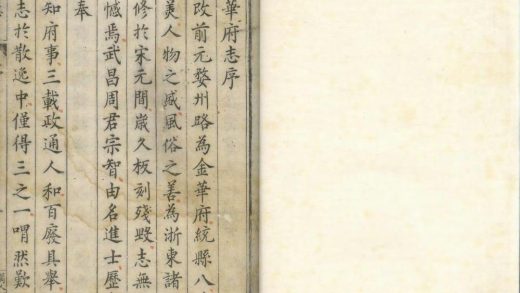 華府志序
改前元婺州路為金華府統縣八
美人物之盛風俗之善為浙東諸
修於宋元間歲久板刻殘毀志無
憾焉武昌周君宗智由名進士歷
奉
知府事三載政通人和百廢具舉
志於散逸中僅得三之一喟然歎